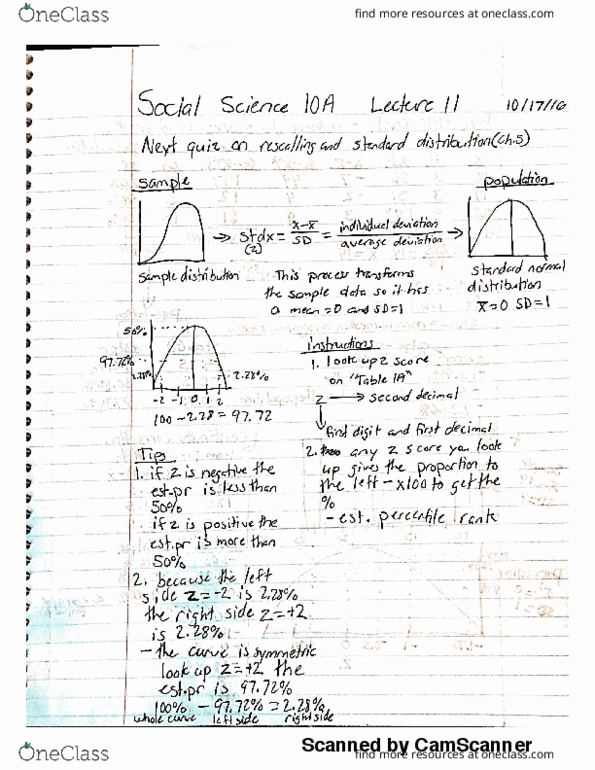 OneClass
find more resources at oneclass.com
Social Science 10A Lecture 11 10/17/16
Next quiz on rescalling and standard distribution (ch.5)
sample
population
→ stdx = x-x̄ / SD = individual deviation / average deviation →
(z)
sample distribution
This process transforms
the sample data so it has
a mean = 0 and SD=1
standard normal
distribution
x̄=0 SD=1
50%
97.72%
2.28%
2.28%
-2 -1 0 1 2
100 - 2.28 = 97.72
Instructions
1. look up z score
on "Table 1A"
z → second decimal
↓
first digit and first decimal
2. any z score you look
up gives the proportion to
the left - x100 to get the
%
- est. percentile rank
Tips
1. if z is negative the
est.pr is less than
50%
if z is positive the
est.pr is more than
50%
2. because the left
side z=-2 is 2.28%
the right side z=+2
is 2.28%
- the curve is symmetric
look up z=+2 the
est.pr is 97.72%
100% - 97.72% = 2.28%
whole curve left side right side
Scanned by CamScanner
OneClass
find more resources at oneclass.com